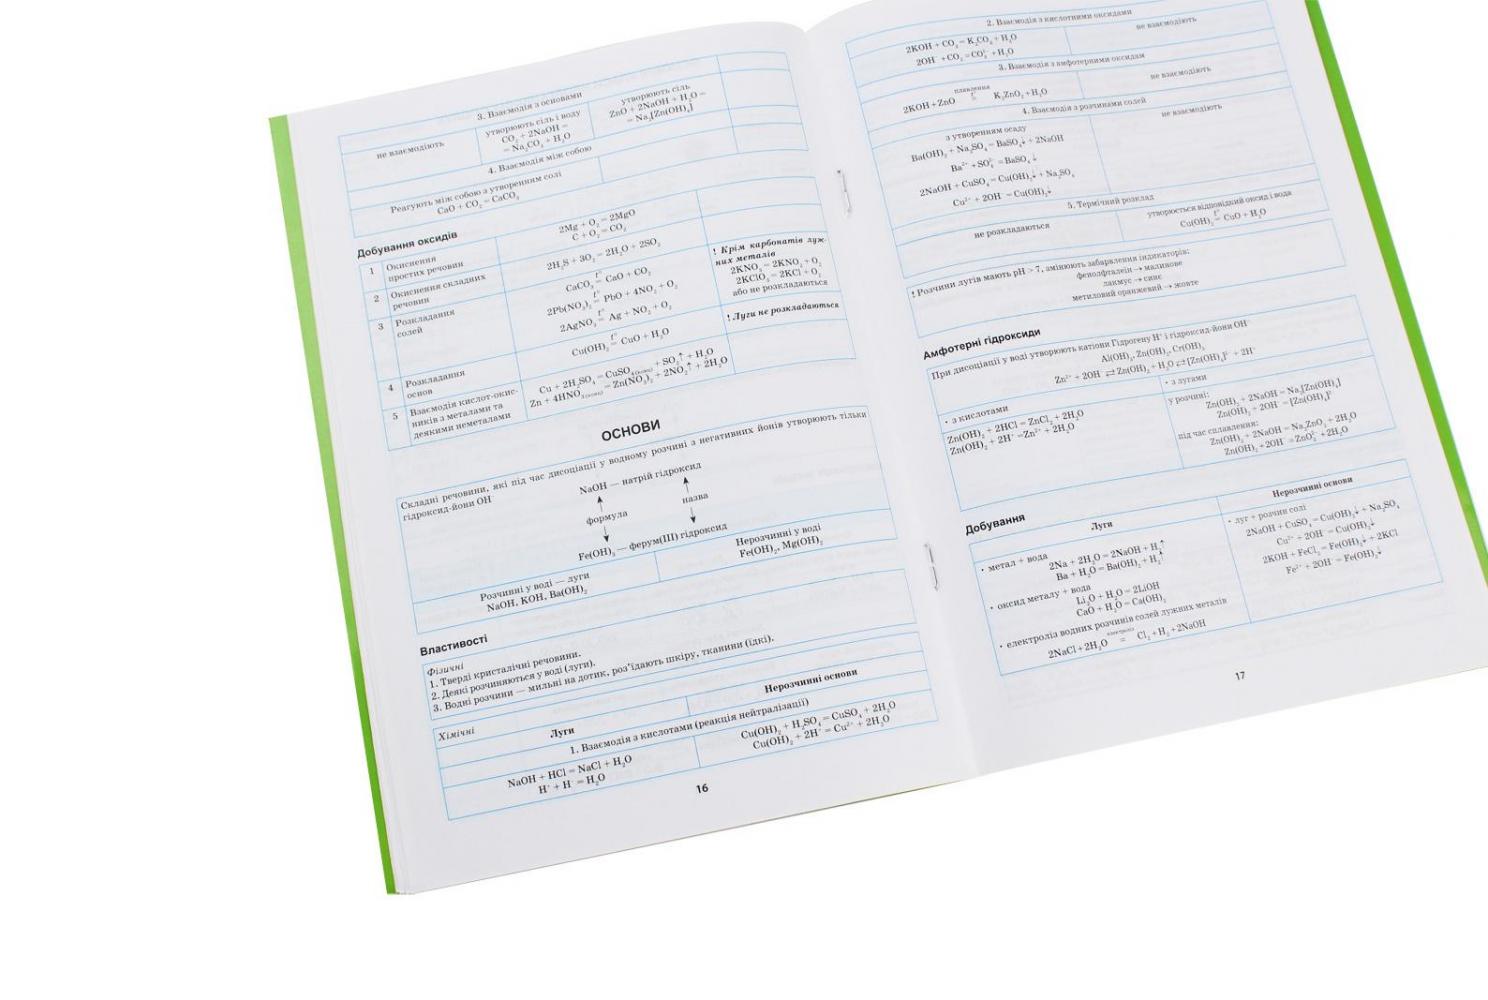 3. Взаємодія з основами
не взаємодіють
утворюють сіль і воду
CO₂ + 2NaOH =
= Na₂CO₃ + H₂O
утворюють сіль
ZnO + 2NaOH + H₂O =
= Na₂[Zn(OH)₄]
4. Взаємодія між собою
Реагують між собою з утворенням солі
CaO + CO₂ = CaCO₃
Добування оксидів
1 Окиснення
простих речовин
2Mg + O₂ = 2MgO
C + O₂ = CO₂
2 Окиснення складних
речовин
2H₂S + 3O₂ = 2H₂O + 2SO₂
3 Розкладання
солей
CaCO₃ =t° CaO + CO₂
2Pb(NO₃)₂ =t° PbO + 4NO₂ + O₂
2AgNO₃ =t° Ag + NO₂ + O₂
! Крім карбонатів луж-
них металів
2KNO₃ = 2KNO₂ + O₂
2KClO₃ = 2KCl + O₂
або не розкладаються
4 Розкладання
основ
Cu(OH)₂ =t° CuO + H₂O
! Луги не розкладаються
5 Взаємодія кислот-окис-
ників з металами та
деякими неметалами
Cu + 2H₂SO₄ = CuSO₄ + SO₂↑ + H₂O
Zn + 4HNO₃ = Zn(NO₃)₂ + 2NO₂↑ + 2H₂O
ОСНОВИ
Складні речовини, які під час дисоціації у водному розчині з негативних йонів утворюють тільки
гідроксид-йони OH⁻
NaOH — натрій гідроксид
формула назва
Fe(OH)₃ — ферум(III) гідроксид
Розчинні у воді — луги
NaOH, KOH, Ba(OH)₂
Нерозчинні у воді
Fe(OH)₂, Mg(OH)₂
Властивості
Фізичні
1. Тверді кристалічні речовини.
2. Деякі розчиняються у воді (луги).
3. Водні розчини — мильні на дотик, роз'їдають шкіру, тканини (їдкі).
Хімічні
Луги
Нерозчинні основи
1. Взаємодія з кислотами (реакція нейтралізації)
NaOH + HCl = NaCl + H₂O
H⁺ + H⁻ = H₂O
Cu(OH)₂ + H₂SO₄ = CuSO₄ + 2H₂O
Cu(OH)₂ + 2H⁺ = Cu²⁺ + 2H₂O
16
2. Взаємодія з кислотними оксидами
2KOH + CO₂ = K₂CO₃ + H₂O
2OH⁻ + CO₂ = CO₃²⁻ + H₂O
не взаємодіють
3. Взаємодія з амфотерними оксидам
2KOH + ZnO =плавлення t° K₂ZnO₂ + H₂O
не взаємодіють
4. Взаємодія з розчинами солей
з утворенням осаду
Ba(OH)₂ + Na₂SO₄ = BaSO₄↓ + 2NaOH
Ba²⁺ + SO₄²⁻ = BaSO₄↓
2NaOH + CuSO₄ = Cu(OH)₂↓ + Na₂SO₄
Cu²⁺ + 2OH⁻ = Cu(OH)₂↓
не взаємодіють
5. Термічний розклад
не розкладаються
утворюється відповідний оксид і вода
Cu(OH)₂ =t° CuO + H₂O
! Розчини лугів мають pH > 7, змінюють забарвлення індикаторів:
фенолфталеїн → малинове
лакмус → синє
метиловий оранжевий → жовте
Амфотерні гідроксиди
При дисоціації у воді утворюють катіони Гідрогену H⁺ і гідроксид-йони OH⁻
Al(OH)₃, Zn(OH)₂, Cr(OH)₃
Zn²⁺ + 2OH⁻ ⇄ Zn(OH)₂ + H₂O ⇄ [Zn(OH)₄]²⁻ + 2H⁺
• з кислотами
Zn(OH)₂ + 2HCl = ZnCl₂ + 2H₂O
Zn(OH)₂ + 2H⁺ = Zn²⁺ + 2H₂O
• з лугами
у розчині:
Zn(OH)₂ + 2NaOH = Na₂[Zn(OH)₄]
Zn(OH)₂ + 2OH⁻ = [Zn(OH)₄]²⁻
під час сплавлення:
Zn(OH)₂ + 2NaOH = Na₂ZnO₂ + 2H₂O
Zn(OH)₂ + 2OH⁻ = ZnO₂²⁻ + 2H₂O
Добування
Луги
• метал + вода
2Na + 2H₂O = 2NaOH + H₂↑
Ba + H₂O = Ba(OH)₂ + H₂↑
• оксид металу + вода
Li₂O + H₂O = 2LiOH
CaO + H₂O = Ca(OH)₂
• електроліз водних розчинів солей лужних металів
2NaCl + 2H₂O =електроліз Cl₂ + H₂ + 2NaOH
Нерозчинні основи
• луг + розчин солі
2NaOH + CuSO₄ = Cu(OH)₂↓ + Na₂SO₄
Cu²⁺ + 2OH⁻ = Cu(OH)₂↓
2KOH + FeCl₂ = Fe(OH)₂↓ + 2KCl
Fe²⁺ + 2OH⁻ = Fe(OH)₂↓
17